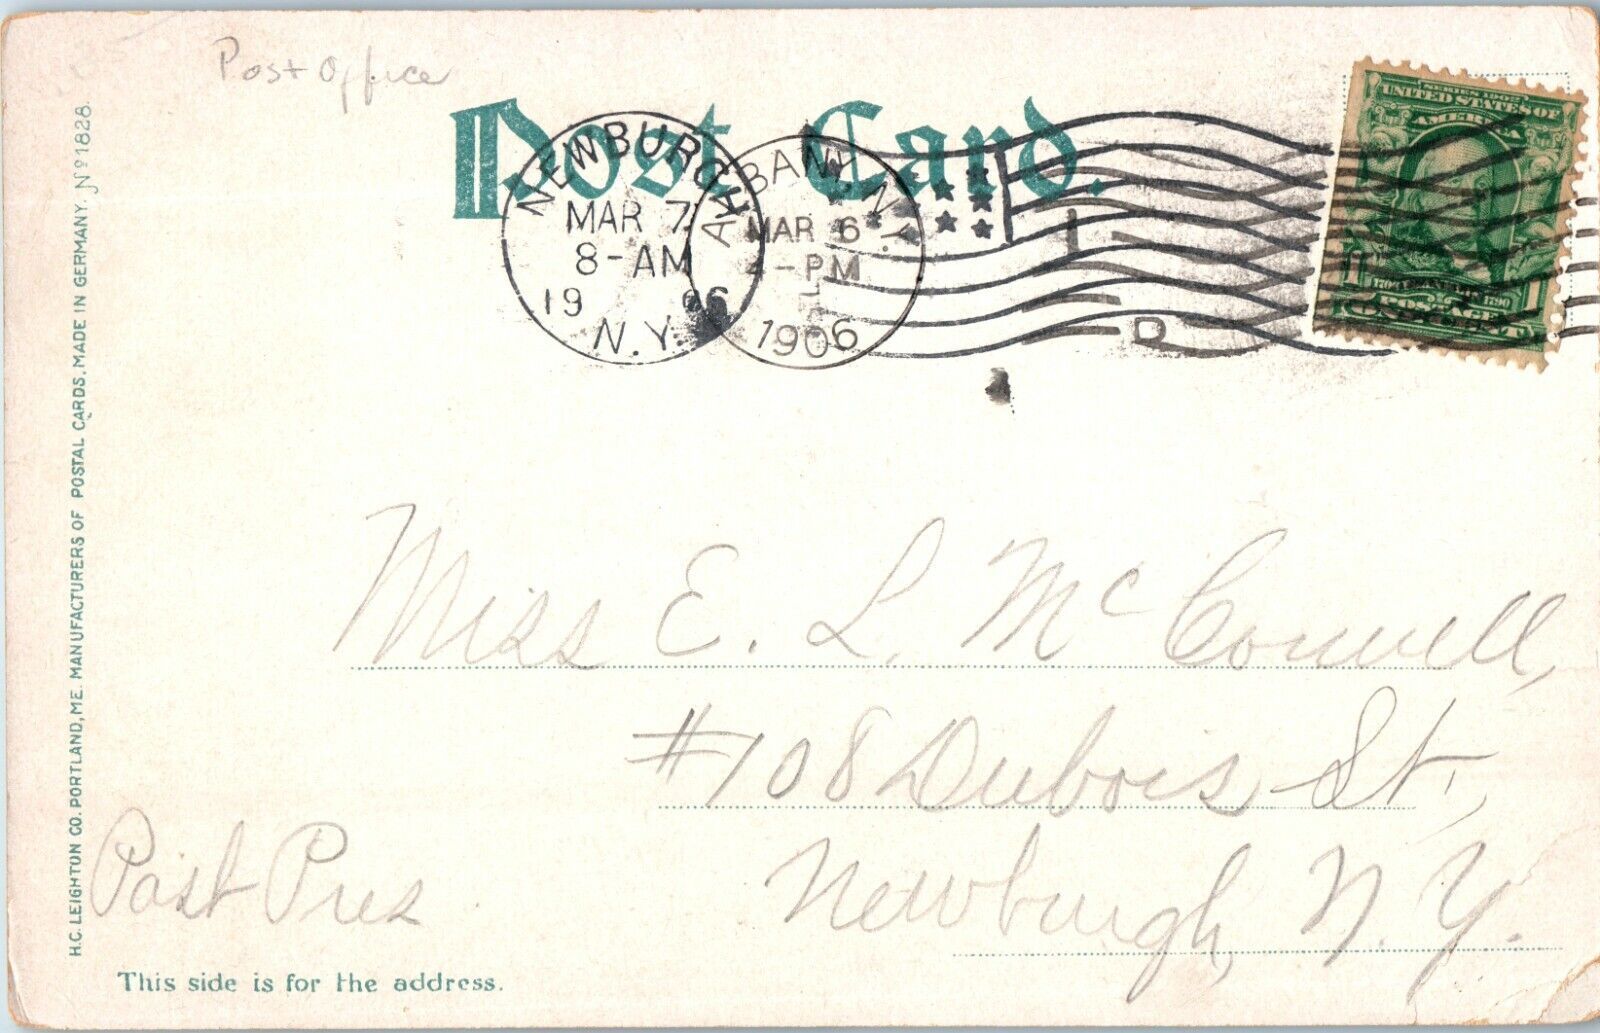 Post Office
Post Card.
NEWBURGH
MAR 7
8-AM
1906
N.Y.
ALBANY, N.Y.
MAR 6
-PM
1906
D
SERIES 1902
UNITED STATES OF
AMERICA
1790
POSTAGE
H.C. LEIGHTON CO. PORTLAND, ME. MANUFACTURERS OF POSTAL CARDS, MADE IN GERMANY. Nº 1828.
Miss E. L. McConnell,
#108 Dubois St.,
Newburgh, N.Y.
Past Pres
This side is for the address.